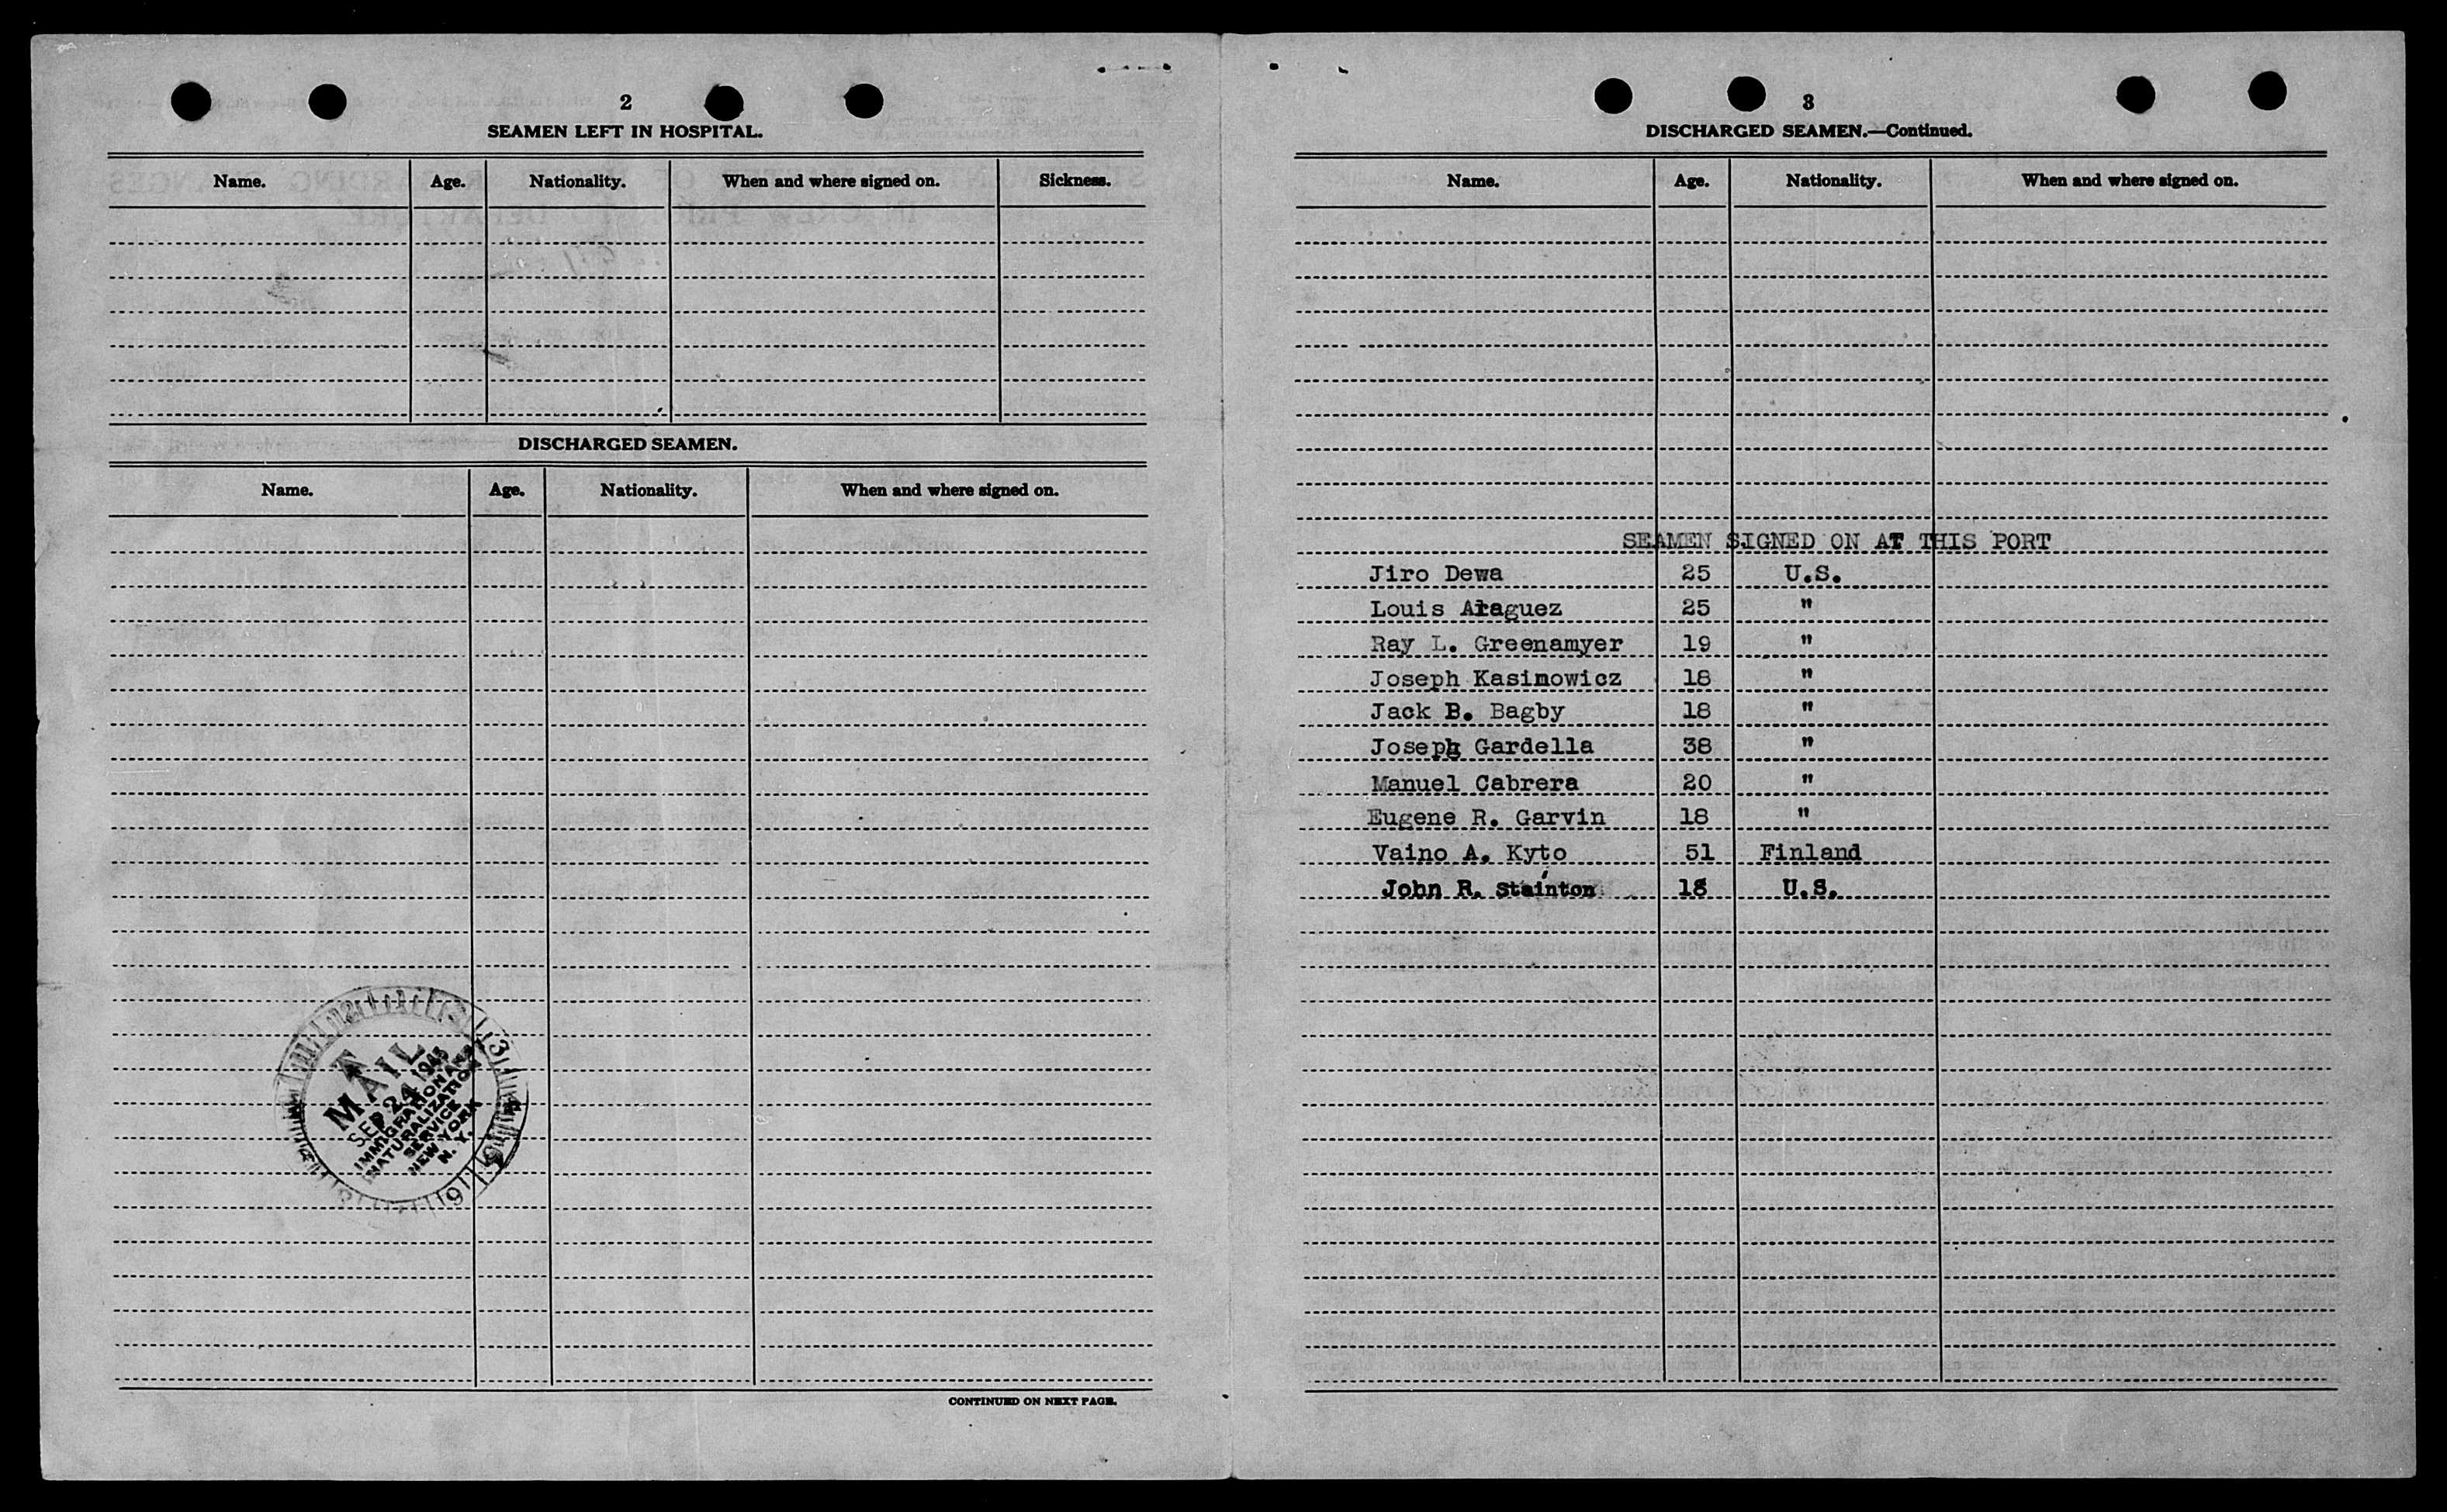 2
SEAMEN LEFT IN HOSPITAL.
Name. Age. Nationality. When and where signed on. Sickness.
DISCHARGED SEAMEN.
Name. Age. Nationality. When and where signed on.
MAIL
SEP 24 1945
IMMIGRATION AND
NATURALIZATION
SERVICE
NEW YORK
N. Y.
CONTINUED ON NEXT PAGE.
3
DISCHARGED SEAMEN.—Continued.
Name. Age. Nationality. When and where signed on.
SEAMEN SIGNED ON AT THIS PORT
Jiro Dewa 25 U.S.
Louis Araguez 25 "
Ray L. Greenamyer 19 "
Joseph Kasinowicz 18 "
Jack B. Bagby 18 "
Joseph Gardella 38 "
Manuel Cabrera 20 "
Eugene R. Garvin 18 "
Vaino A. Kyto 51 Finland
John R. Stainton 18 U.S.